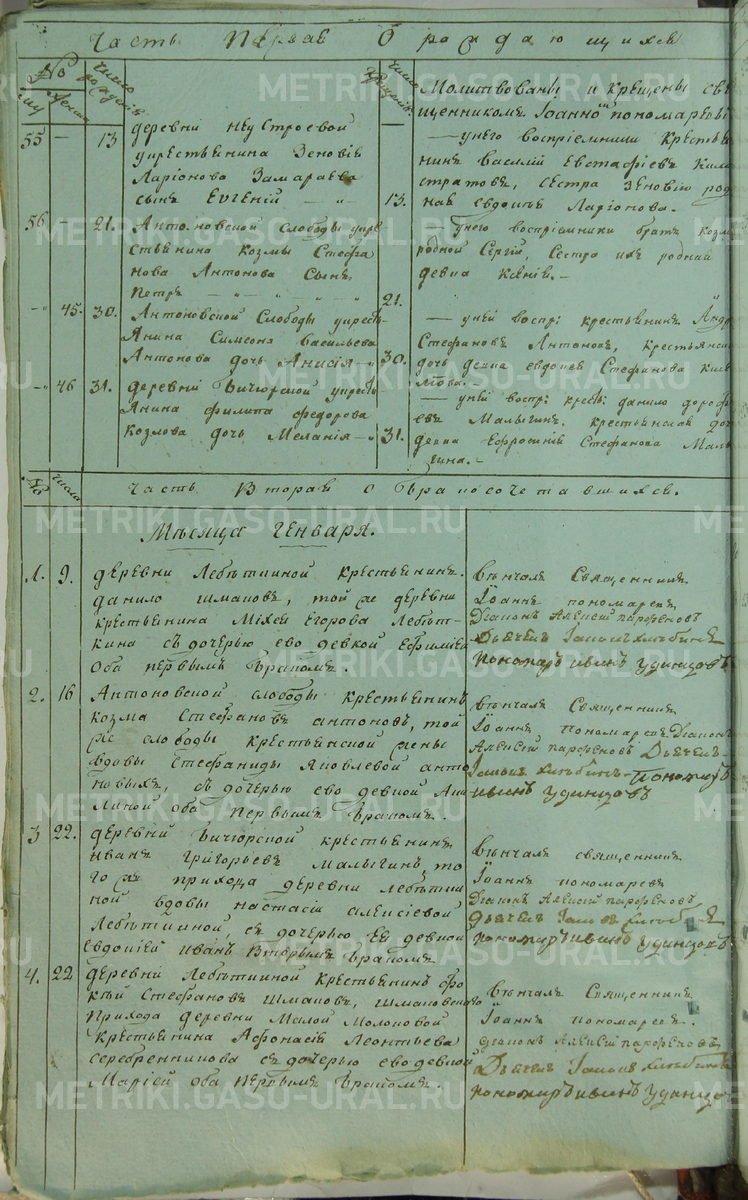 Часть Первая О раждающихся
№
число рождения
число крещения
муж
женск
55 — 13
деревни Неустроевой
укрестьянина Зеновiя
Ларiонова Замараева
сынъ Евгенiй — „ — „
13.
Молитвованы и крещены свя
щенникомъ Iоанномъ Пономаревы
— унего воспрiемники крестья
нинъ Василiй Евстафiевъ
стратовъ, сестра Зеновiю род
ная Евдокiя Ларiонова.
56 — 21.
Антоновской Слободы укре
стьянина Козмы Стефа
нова Антонова Сынъ
Петръ — „ — „ — „
21.
— унего воспрiемники братъ Козм
родной Сергiй, Сестра ихъ родная
девка Ксенiя. —
— „ 45. 30.
Антоновской Слободы укресть
янина Симеона Васильева
Антонова дочь Анисiя — „
30.
— уней воспр: крестьянинъ Андр
Стефановъ Антоновъ, крестьянска
дочь девка Евдокея Стефанова
— „ 46 31.
деревни Бичурской укресть
янина Филипа Федорова
Козлова дочь Меланiя — „
31.
— уней воспр: кресть: Данило Дороф
евъ Малыгинъ. крестьянская доч
девка Ефросинiя Стефанова Малы
гина. —
№
числа
Часть Вторая о Бракосочетавшихся.
Мѣсяца Генваря.
1. 9.
деревни Лебѣткиной крестьянинъ
Данило Шмаковъ, той же деревни
крестьянина Михея Егорова Лебѣт-
кина съ дочерью ево девкой Ефимiей
оба первымъ бракомъ.
вѣнчалъ Священникъ
Iоаннъ Пономаревъ
Дiаконъ Алексiй Парфеновъ
Дьячекъ
Пономарь Иванъ Удинцовъ
2. 16
Антоновской слободы крестьянинъ
Козма Стефановъ Антоновъ, той
же слободы крестьянской жены
вдовы Стефаниды Яковлевой Анто
новыхъ, съ дочерью ево девкой Аку
линой оба первымъ бракомъ.
вѣнчалъ Священникъ
Iоаннъ Пономаревъ Дiаконъ
Алексiй Парфеновъ Дьячекъ
Пономарь
Иванъ Удинцовъ
3 22.
деревни Бичурской крестьянинъ
Иванъ Григорьевъ Малыгинъ, то
го же прихода деревни Лебѣтки
ной вдовы Настасiи Алексiевой
Лебѣткиной, съ дочерью Ея девкой
Евдокiей Иванъ Вторымъ бракомъ
вѣнчалъ священникъ
Iоаннъ Пономаревъ
Дiаконъ Алексiй Парфеновъ
Дьячекъ
Пономарь Иванъ Удинцовъ
4. 22
деревни Лебѣткиной крестьянинъ Фо
кѣй Стефановъ Шмаковъ, Шмаковскаго
Прихода деревни Малой Молоковой
крестьянина Афонасiя Леонтьева
Серебренникова съ дочерью ево девкой
Марiей оба первымъ бракомъ.
вѣнчалъ Священникъ
Iоаннъ Пономаревъ.
Дiаконъ Алексiй Парфеновъ
Дьячекъ
Пономарь Иванъ Удинцовъ
METRIKI.GASO-URAL.RU